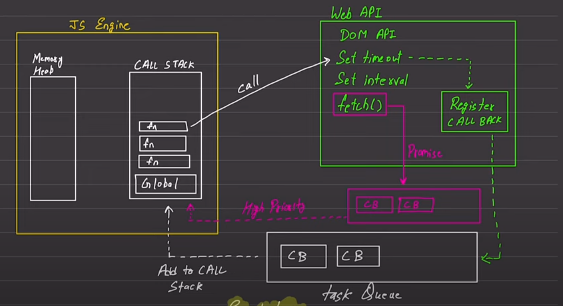 JS Engine
Memory
Heap
CALL STACK
fn
fn
fn
Global
call
Web API
DOM API
Set timeout
Set interval
fetch()
Register
CALL BACK
Promise
CB
CB
High Priority
CB
CB
Add to CALL
Stack
task Queue